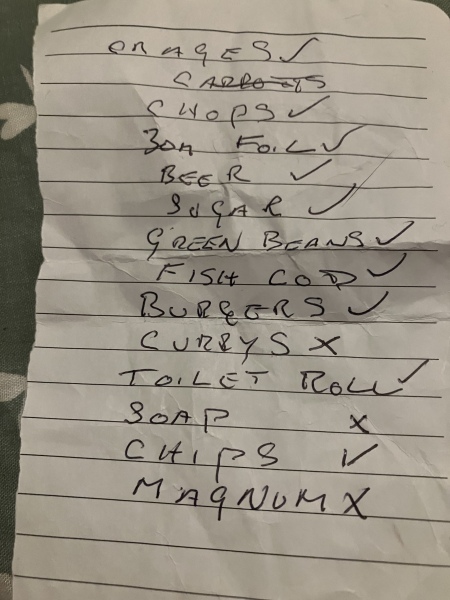 ORAGES ✓
CARROTS
CHOPS ✓
30M FOIL ✓
BEER ✓
SUGAR ✓
GREEN BEANS ✓
FISH COD ✓
BURGERS ✓
CURRYS X
TOILET ROLL ✓
SOAP X
CHIPS ✓
MAGNUM X